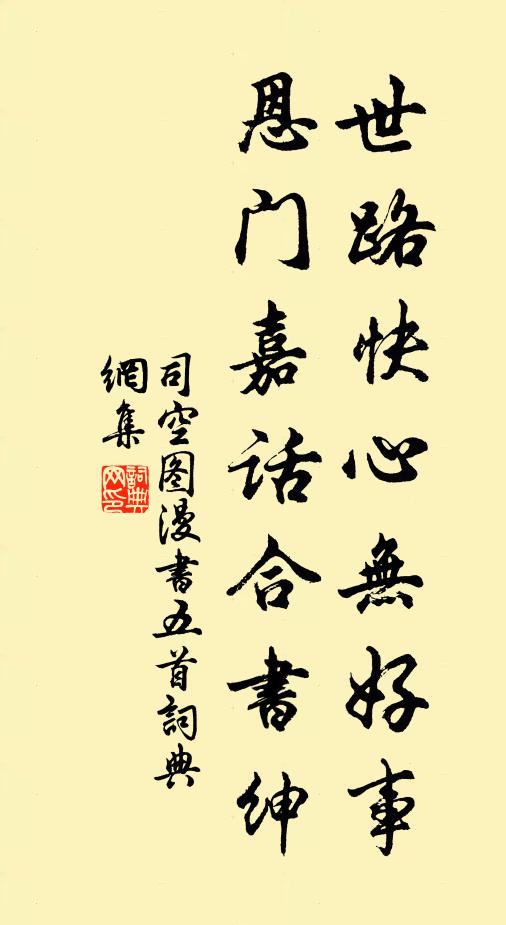 世路快心無好事
恩门嘉话合書紳
司空图漫書五首詞典
網集
詞典
网印